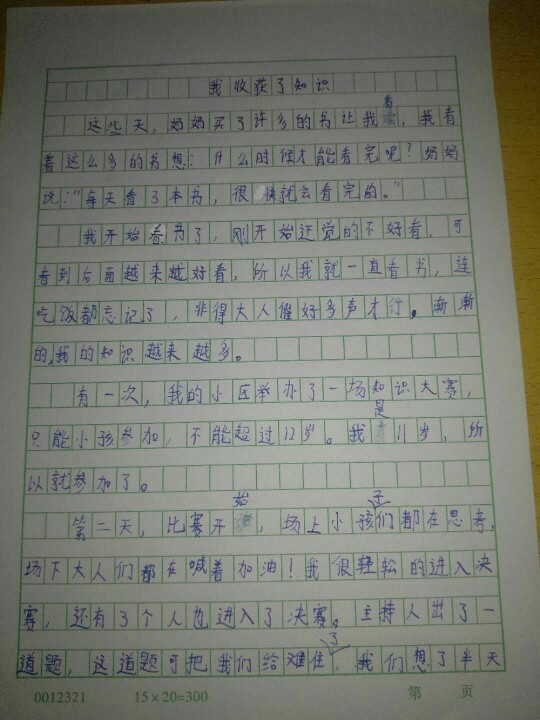 我收获了知识
这些天，妈妈买了许多的书让我看，我看
着这么多的书想：什么时候才能看完呢？妈妈
说：“每天看3本书，很快就会看完的。”
我开始看书了，刚开始还觉的不好看，可
看到后面越来越好看，所以我就一直看书，连
吃饭都忘记了，非得大人催好多声才行。渐渐
的，我的知识越来越多。
有一次，我的小区举办了一场知识大赛，
只能小孩参加，不能超过12岁。我是11岁，所
以就参加了。
第二天，比赛开始，场上小孩子们都在思考，
场下大人们都在喊着加油！我很轻松的进入决
赛，还有3个人也进入了决赛。主持人出了一
道题，这道题可把我们给难住了，我们想了半天
0012321 15×20=300 第 页